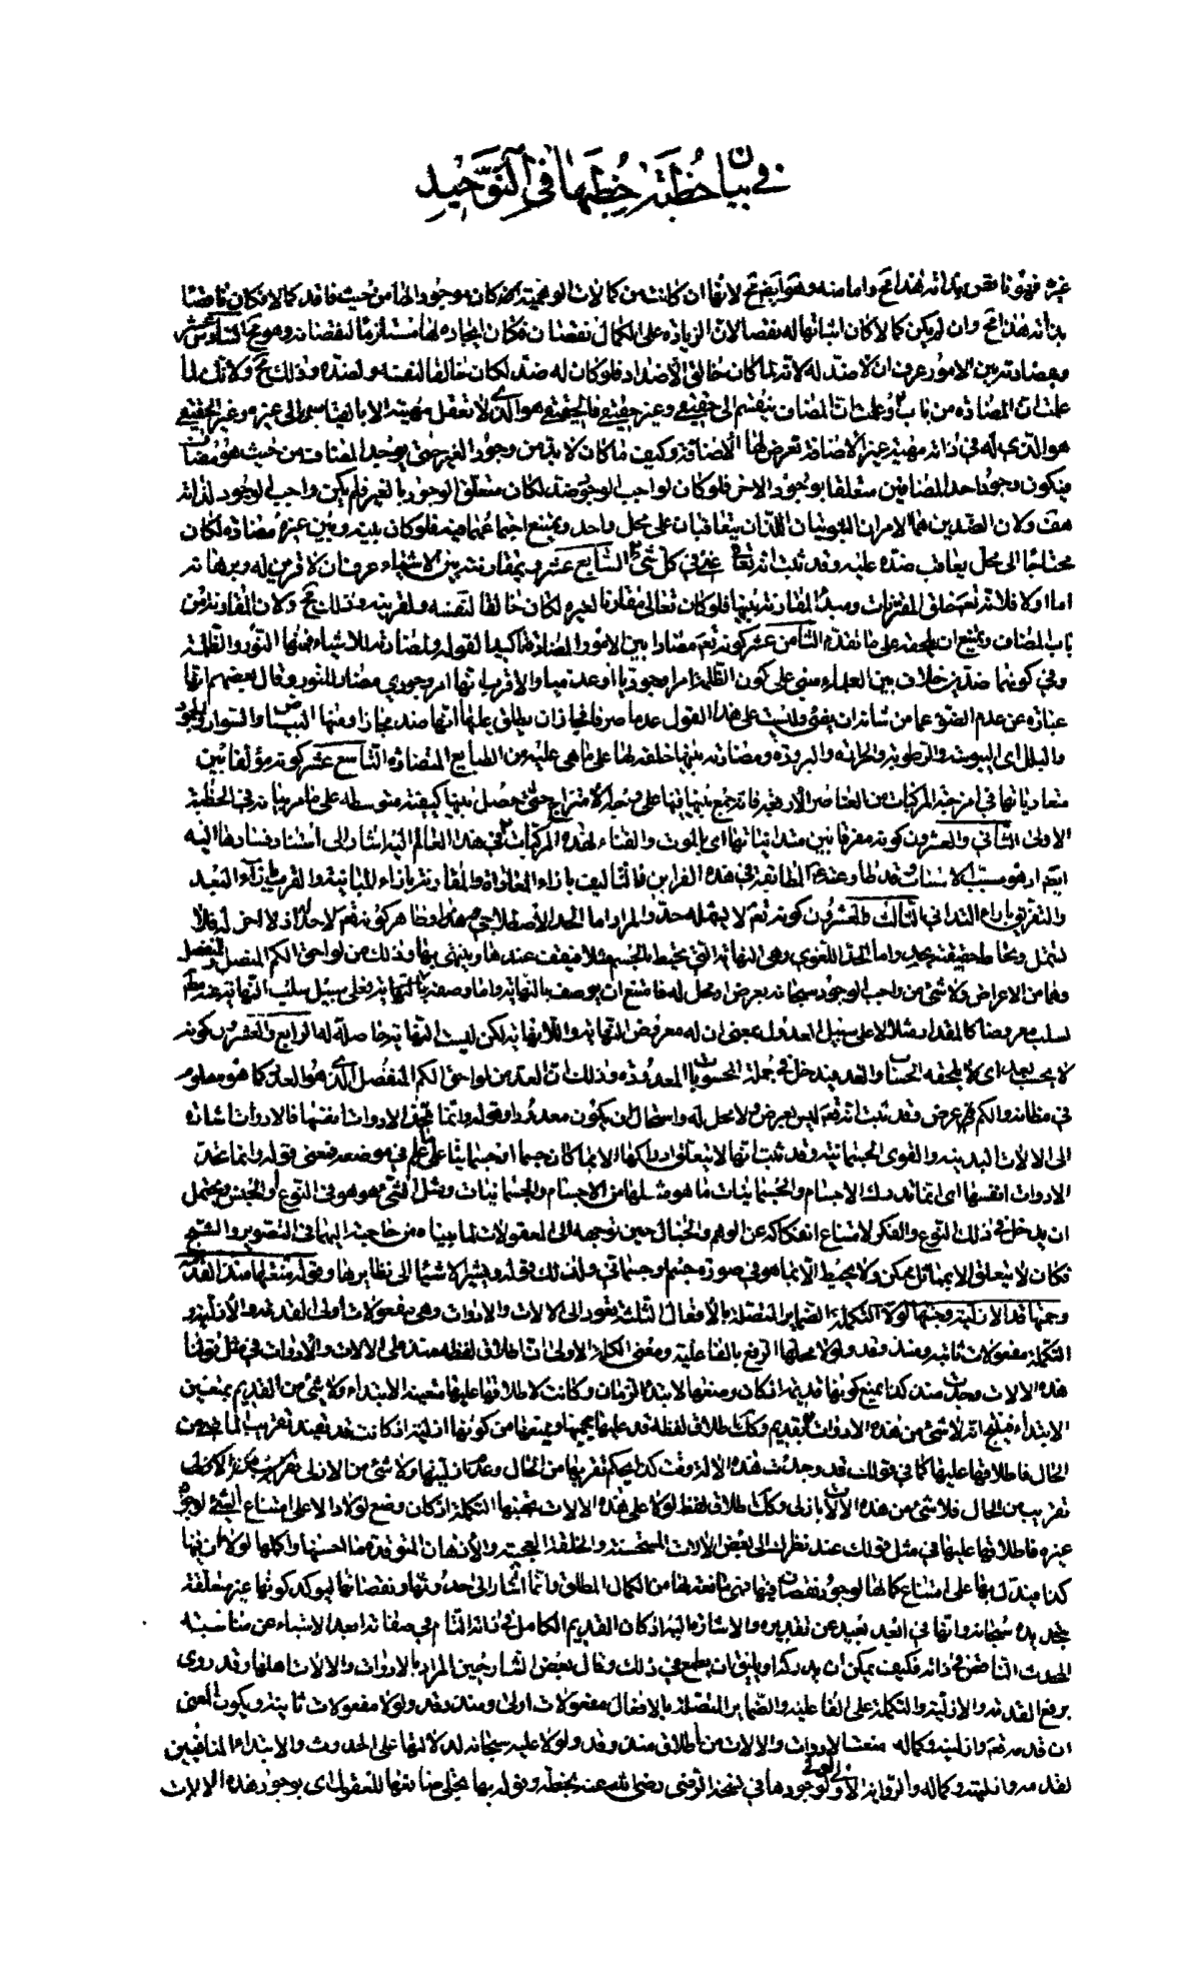 في بيان خطبة خطبها في التوحيد
غيره فهو ناقص بذاته هذا مح واما منه وهو ايضا مح لانها ان كانت من كمالات الوهيته كان موجودا لها من حيث هو فاقد كمالا فكان ناقصا
بذاته هذا مح وان لم يكن كمالا كان اثباتها له نقصا لان الزيادة على الكمال نقصان فكان ايجاده لها مستلزما لنقصانه وهو مح السادس عشر
وبمضادته بين الامور عرف ان لا ضد له لانه لما كان خالق الاضداد فلو كان له ضد لكان خالقا لنفسه ولضده وذلك مح ولانك لما
علمت ان المضادة من باب المضاف وعلمت ان المضاف ينقسم الى حقيقي وغير حقيقي فالحقيقي هو الذي لا تعقل مهيته الا بالقياس الى غيره وغير الحقيقي
هو الذي له في ذاته مهية غير الاضافة تعرض لها الاضافة وكيف ما كان لا بد من وجود الغير حتى يوجد المضاف من حيث هو مضاف
فيكون وجود احد المضافين متعلقا بوجود الاخر فلو كان لواجب الوجود ضد لكان متعلق الوجود بالغير فلم يكن واجب الوجود لذاته
هف ولان الضدين هما الامران الثبوتيان اللذان يتعاقبان على محل واحد ويمتنع اجتماعهما فيه فلو كان بينه وبين غيره مضادة لكان
محتاجا الى محل يعاقب ضده عليه وقد ثبت انه تعالى غني في كل شيء السابع عشر وبمقارنته بين الاشياء عرف ان لا قرين له وبرهانه
اما اولا فلانه تعم خلق المقترنات ومبدأ المقارنة بينها فلو كان تعالى مقارنا لغيره لكان خالقا لنفسه ولقرينه وذلك مح ولان المقارنة من
باب المضاف ويمتنع ان يلحقه على ما تقدم الثامن عشر كونه تعم مضادا بين الامور المضادة تاكيدا لقوله وبمضادته للاشياء فمنها النور والظلمة
وفي كونهما ضدين خلاف بين العلماء مبني على كون الظلمة امرا وجوديا او عدميا والاقرب انها امر وجودي مضاد للنور وقال بعضهم انها
عبارة عن عدم الضوء عما من شانه ان يضيء وليست على هذا القول عدما صرفا فجاز ان يطلق عليها انها ضد مجازا ومنها البياض والسواد والجمود
والبلل اى اليبوسة والرطوبة والحرارة والبرودة ومضادته بينها خلقه لها على ما هي عليه من الطبايع المتضادة التاسع عشر كونه مؤلفا بين
متعادياتها في امزجة المركبات من العناصر الاربعة فانه جمع بينها فيها على وجه الامتزاج حتى حصل بينها كيفية متوسطة على ما مر بيانه في الخطبة
الاولى الثاني والعشرون كونه مفرقا بين متدانياتها اى بالموت والفناء لهذه المركبات في هذا العالم اشارة الى استناد فسادها اليه
ايضا اذ هو مسبب الاسباب وقد طابق المطابقة في هذه القراين فالتاليف بازاء المعاداة والمقارنة بازاء المباينة والقرب بازاء البعد
والتفريق بازاء التداني الثالث والعشرون كونه تعم لا يشمله حد والمراد اما الحد الاصطلاحي وظاهر كونه تعم لا حد له اذ لا اجزاء له فلا
تشمل ويحاط حقيقته بحد واما الحد اللغوي وهو النهاية التي تحيط بالجسم مثلا فيقف عندها وينتهي بها وذلك من لواحق الكم المتصل والمنفصل
وهما من الاعراض ولا شيء من واجب الوجود سبحانه بعرض او محل له فامتنع ان يوصف بالنهاية واما وصفه باللانهاية فعلى سبيل سلب النهاية عنه مطلقا
بسلب معروضها كالمقدار مثلا لا على سبيل العدول بمعنى ان له معروض النهاية واللانهاية لكن ليست النهاية حاصلة له الرابع والعشرون كونه
لا يحسب بعد اى لا يلحقه الحساب والعد فيدخل في جملة المحسوبات المعدودة وذلك ان العد من لواحق الكم المنفصل الذي هو العدد كما هو معلوم
في مظانه والكم عرض وقد ثبت انه تعم ليس بعرض ولا محل له واستحال ان يكون معدودا وقوله وانما تحد الادوات انفسها فالادوات اشارة
الى الالات البدنية والقوى الجسمانية وقد ثبت انها لا يتعلق ادراكها الا بما كان جسما او جسمانيا على ما علم في موضعه فمعنى قوله وانما تحد
الادوات انفسها اى انما تدرك الاجسام والجسمانيات ما هو مثلها من الاجسام والجسمانيات ومثل الشيء هو هو في النوع او الجنس ويحتمل
ان يدخل في ذلك النوع والفكر لامتناع انفكاكه عن الوهم والخيال حين توجهه الى المعقولات لما بيناه من حاجته اليهما في التصوير والشبح
فكان لا يتعلق الا بمماثل ممكن ولا يحيط الا بما هو في صورة جسم او جسماني ولذلك قوله ويشير الاشياء الى نظايرها وقوله منعتها منذ القدمة
وحمتها قد الازلية وجنبتها لولا التكملة الضماير المتصلة بالافعال الثلثة تعود الى الالات والادوات وهي مفعولات اولى والقدمة والازلية
والتكملة مفعولات ثانية ومنذ وقد ولولا محلها الرفع بالفاعلية ومعنى الكلمة الاولى ان اطلاق لفظة منذ على الالات والادوات في مثل قولنا
هذه الالات وجدت منذ كذا يمنع كونها قديمة اذ كان وضعها لابتداء الزمان وكانت لاطلاقها عليها متعينة الابتداء ولا شيء من القديم بمتعين
الابتداء فينتج انه لا شيء من هذه الادوات بقديم وكذلك اطلاق لفظة قد عليها يحميها ويمنعها من كونها ازلية اذ كانت قد تفيد تقريب الماضي من
الحال فاطلاقها عليها كما في قولك قد وجدت هذه الالة وقت كذا يحكم بقربها من الحال وعدم ازليتها ولا شيء من الازلي
بقريب من الحال فلا شيء من هذه الالات بازلي وكذلك اطلاق لفظ لولا على هذه الالات يجنبها التكملة اذ كان وضع لولا دالا على امتناع الشيء لوجود
غيره فاطلاقها عليها في مثل قولك عند نظرك الى بعض الالات المستحسنة والخلقة العجيبة والاذهان المتوقدة ما احسنها واكملها لولا ان فيها
كذا فيدل بها على امتناع كمالها لوجود نقصان فيها فهي مانعة لها من الكمال المطلق وانما اشار الى حدوثها ونقصانها ليؤكد كونها غير متعلقة
بتحديده سبحانه وانها في ابعد بعيد عن تقديره والاشارة اليه اذ كان القديم الكامل في ذاته التام في صفاته ابعد الاشياء عن مناسبة
المحدث الناقص في ذاته فكيف يمكن ان يدركه او يليق ان يطمع في ذلك وقال بعض الشارحين المراد بالادوات والالات اهلها وقد روى
برفع القدمة والازلية والتكملة على الفاعلية والضماير المتصلة بالافعال مفعولات اولى ومنذ وقد ولولا مفعولات ثانية ويكون المعنى
ان قدمه تعم وازليته وكماله منعت الادوات والالات من اطلاق منذ وقد ولولا عليه سبحانه لدلالتها على الحدوث والابتداء المنافيين
لقدمه وازليته وكماله والرواية الاولى اولى لوجودها في نسخة الرضي رضى الله عنه بخطه وقوله بها تجلى صانعها للعقول اى بوجود هذه الالات